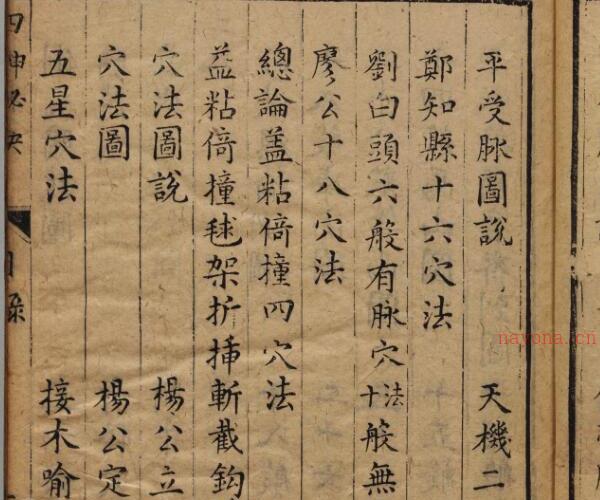 平受脉圖說 天機二
鄭知縣十六穴法
劉白頭六般有脉穴法十般無
廖公十八穴法
總論蓋粘倚撞四穴法
益粘倚撞毬架折揷斬截鈎
穴法圖說 楊公立
穴法圖 楊公定
五星穴法 接木喻
目錄
nayona.cn